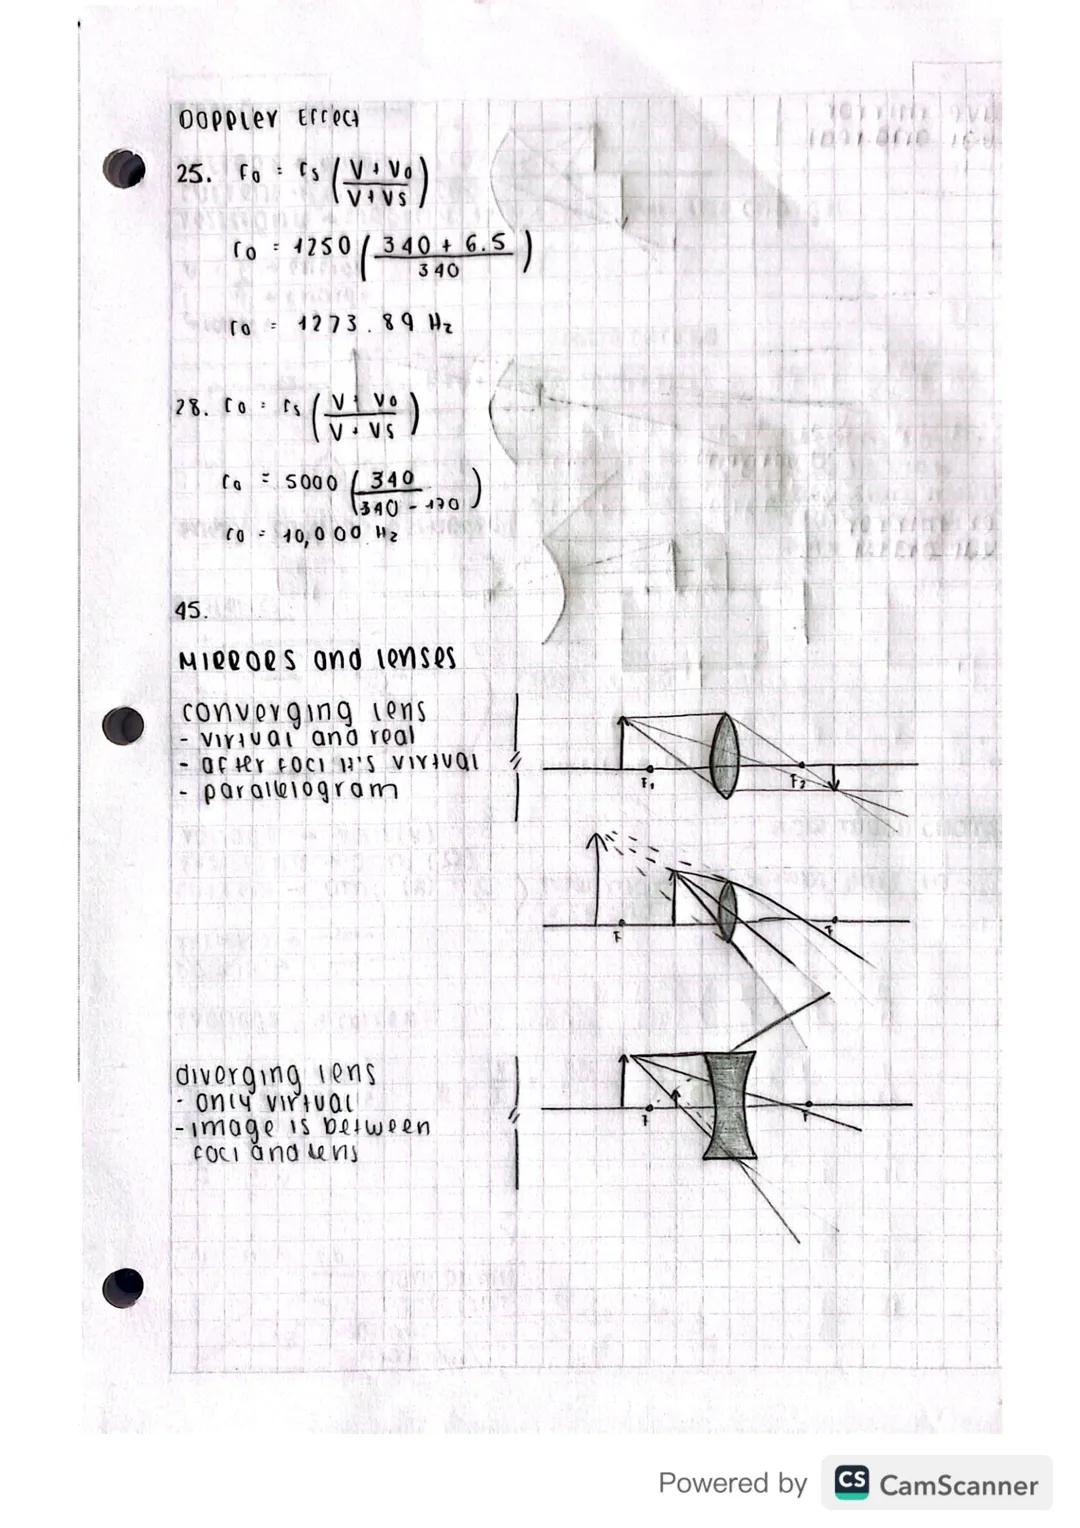 Doppler Effect
25. fo = fs (V + Vo / V + Vs)
fo = 1250 (340 + 6.5 / 340)
fo = 1273.89 Hz
28. fo = fs (V + Vo / V + Vs)
fo = 5000 (340 / 340 - 170)
fo = 10,000 Hz
45.
Mirrors and lenses
converging lens
- virtual and real
- after foci it's virtual
- parallelogram
F1
F2
F
F
diverging lens
- only virtual
- image is between
foci and lens
F
F
Powered by CS CamScanner